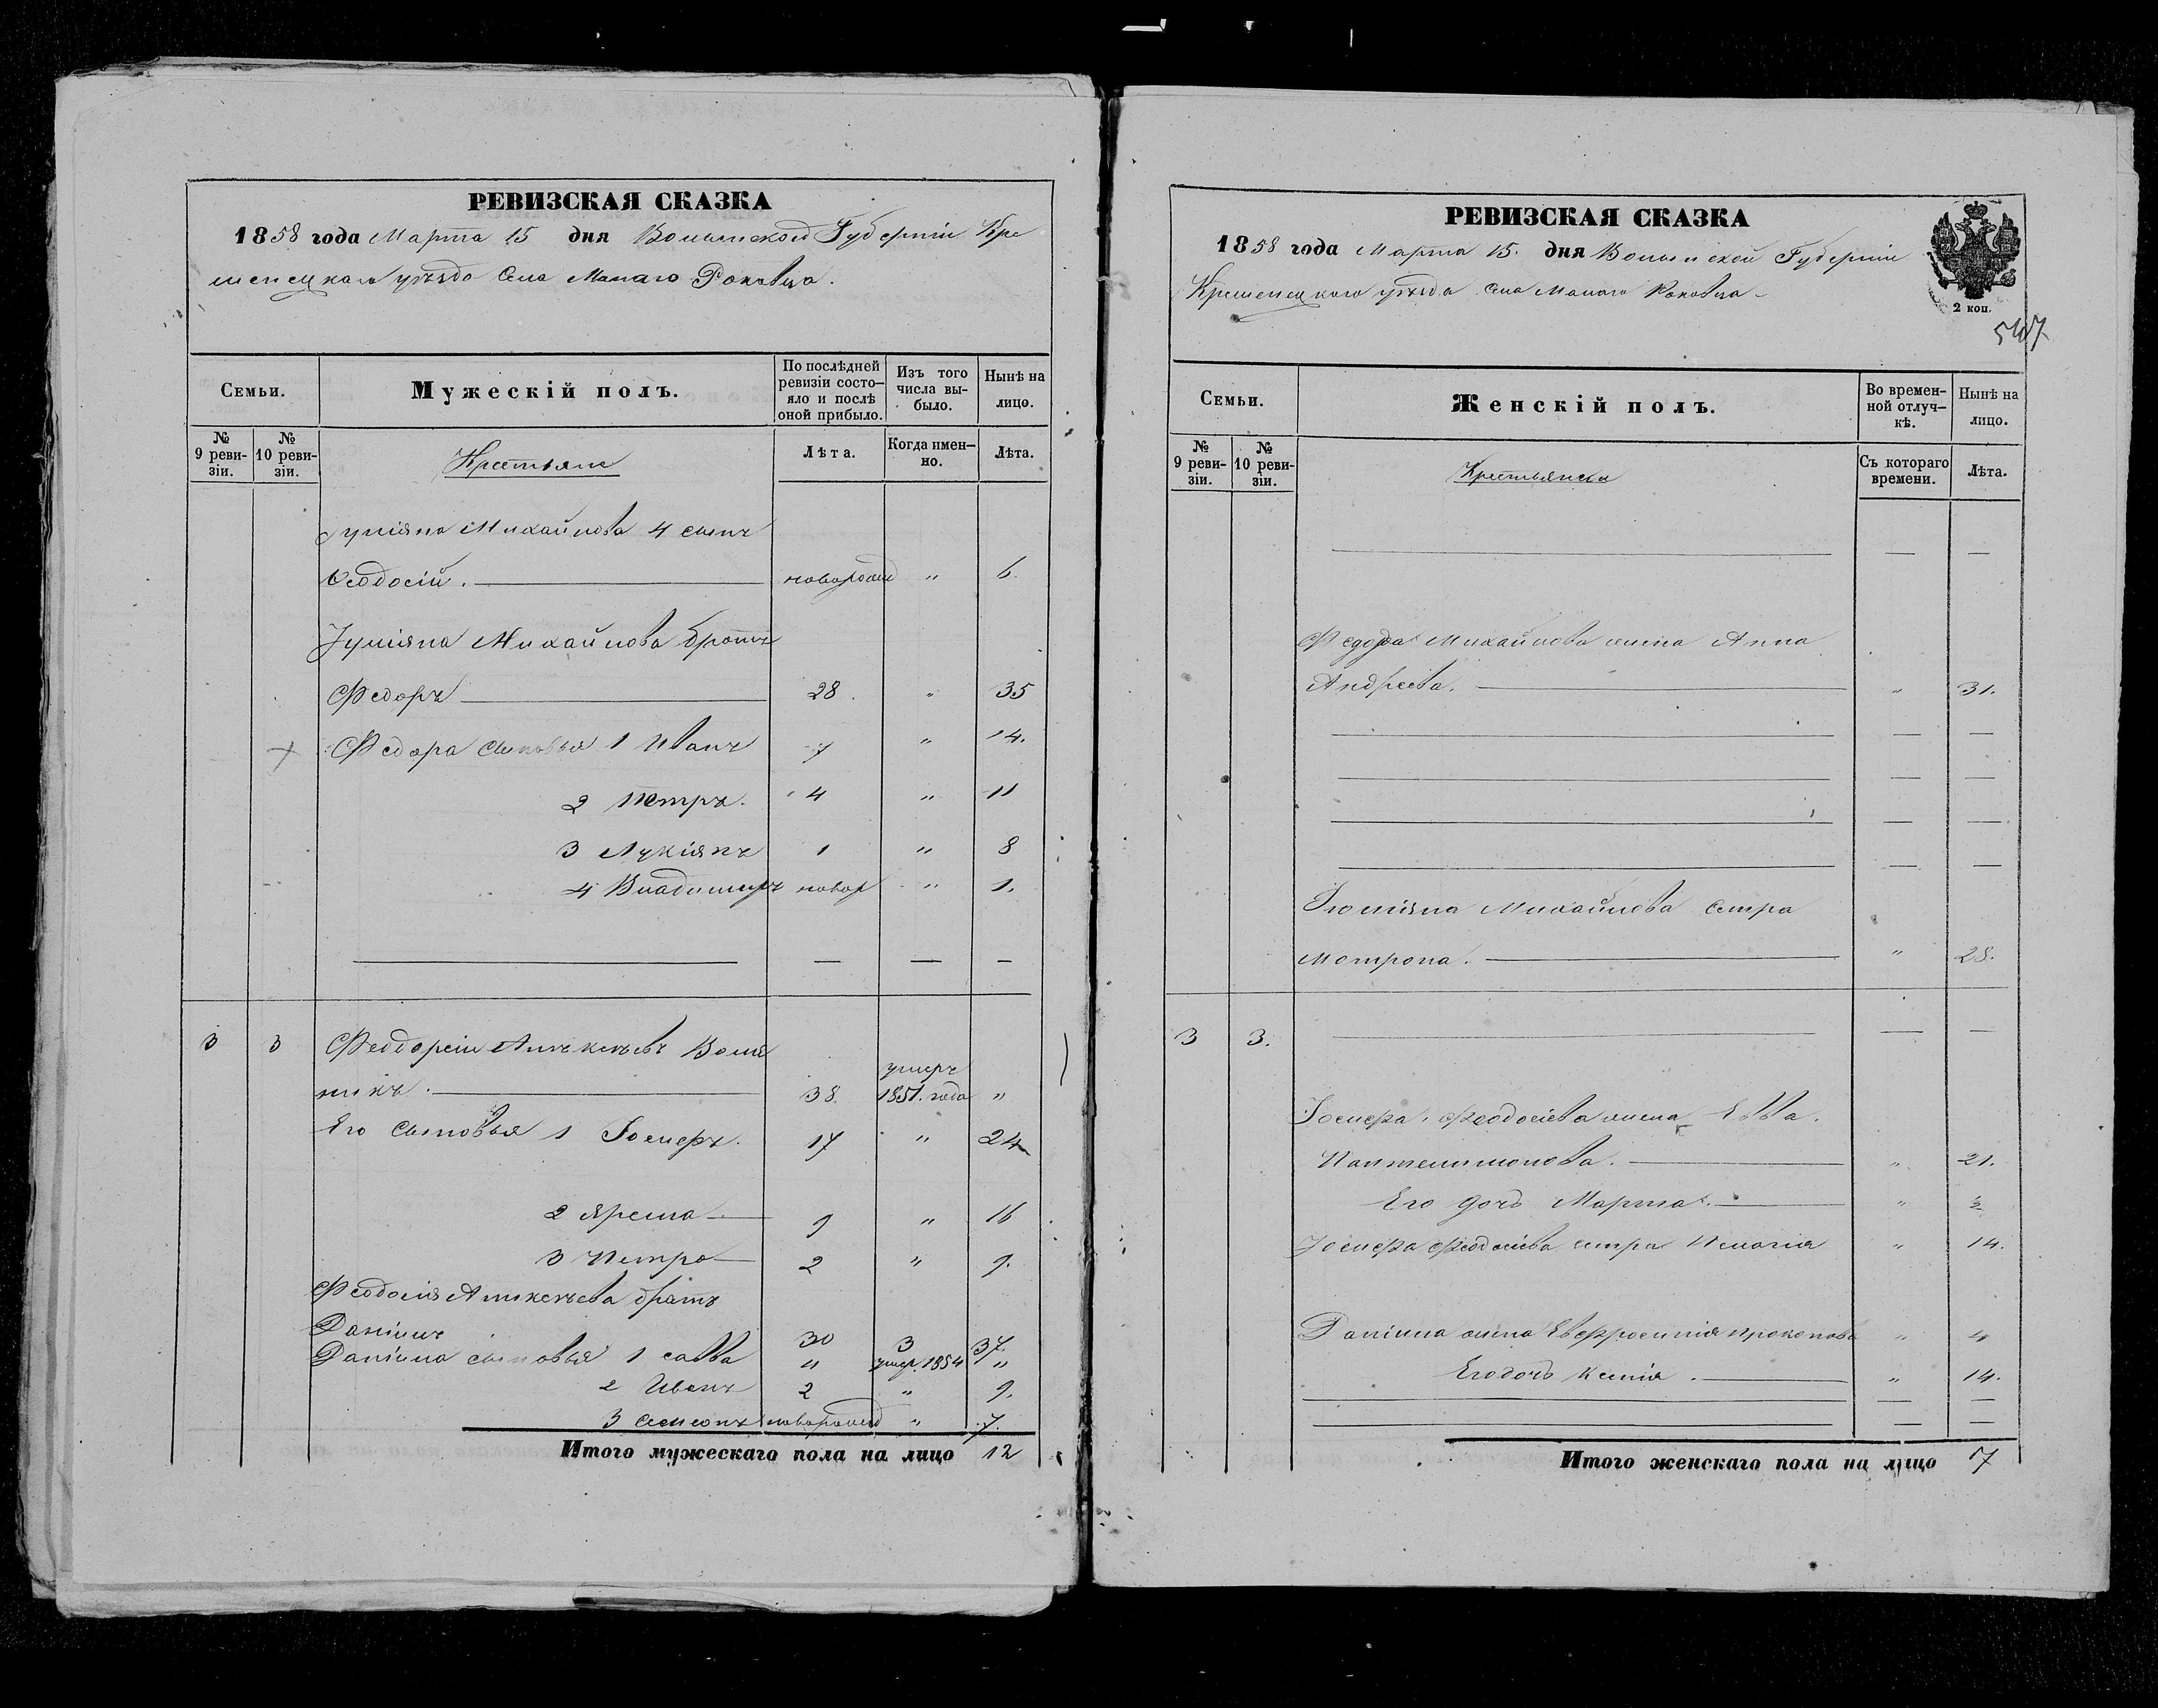 РЕВИЗСКАЯ СКАЗКА
1858 года Марта 15 дня Волынской Губернии Кре
менецкаго уѣзда Села Малаго Раковца.
Семьи.
Мужескій полъ.
По послѣдней
ревизіи состо—
яло и послѣ
оной прибыло.
Изъ того
числа вы-
было.
Нынѣ на
лицо.
№
9 реви-
зіи.
№
10 реви-
зіи.
Крестьяне
Лѣта.
Когда имен—
но.
Лѣта.
Михайлова 4 сынъ
Ѳеодосій. новорожд " 6.
Михайлова братъ
Федоръ 28. " 35
Федора сыновья 1 Иванъ 7 " 14.
2 Петръ. 4 " 11
3 Лукіянъ 1 " 8
4 Владимиръ новор " 1.
3 3
умеръ
никъ. 38. 1851. года "
Его сыновья 1 Іосифъ. 17 " 24
2 Ярема 9 " 16
3 Петро 2 " 9.
Феодосія Аликсѣева братъ
Даніилъ 30 3 37.
Даніила сыновья 1 Савва " умер. 1854 "
2 Иванъ 2 " 9.
3 Семенъ новорожд " 7.
Итого мужескаго пола на лицо 12
РЕВИЗСКАЯ СКАЗКА
1858 года Марта 15. дня Волынской Губерніи
Кременецкаго уѣзда Села Малаго Раковца
2 коп.
Семьи.
Женскій полъ.
Во времен-
ной отлуч—
кѣ.
Нынѣ на
лицо.
№
9 реви-
зіи.
№
10 реви-
зіи.
Крестьянки
Съ котораго
времени.
Лѣта.
Федора Михайлова жена Анна
Андреева. " 31.
Михайлова сестра
Мотрона. " 28.
3 3.
Іосифа Феодосіева жена Евва.
Пантелимонова. " 21.
Его дочь Марта. "
Іосифа Феодосіева сестра Пелагія " 14.
Даніила жена Евфросинія Прокопова "
Его дочь Ксенія. " 14.
Итого женскаго пола на лицо 7